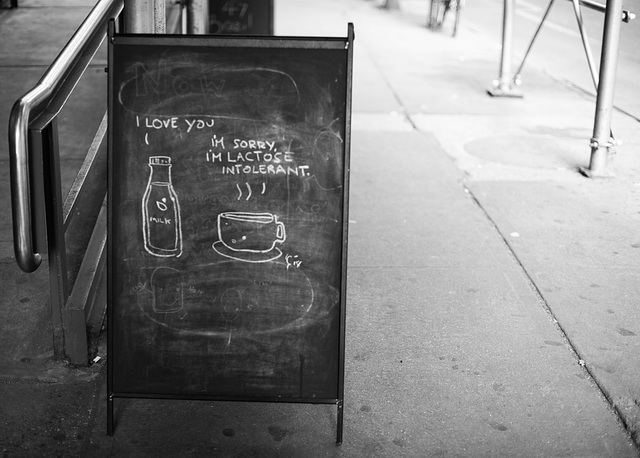 Now
I LOVE YOU
I'M SORRY,
I'M LACTOSE
INTOLERANT.
MILK